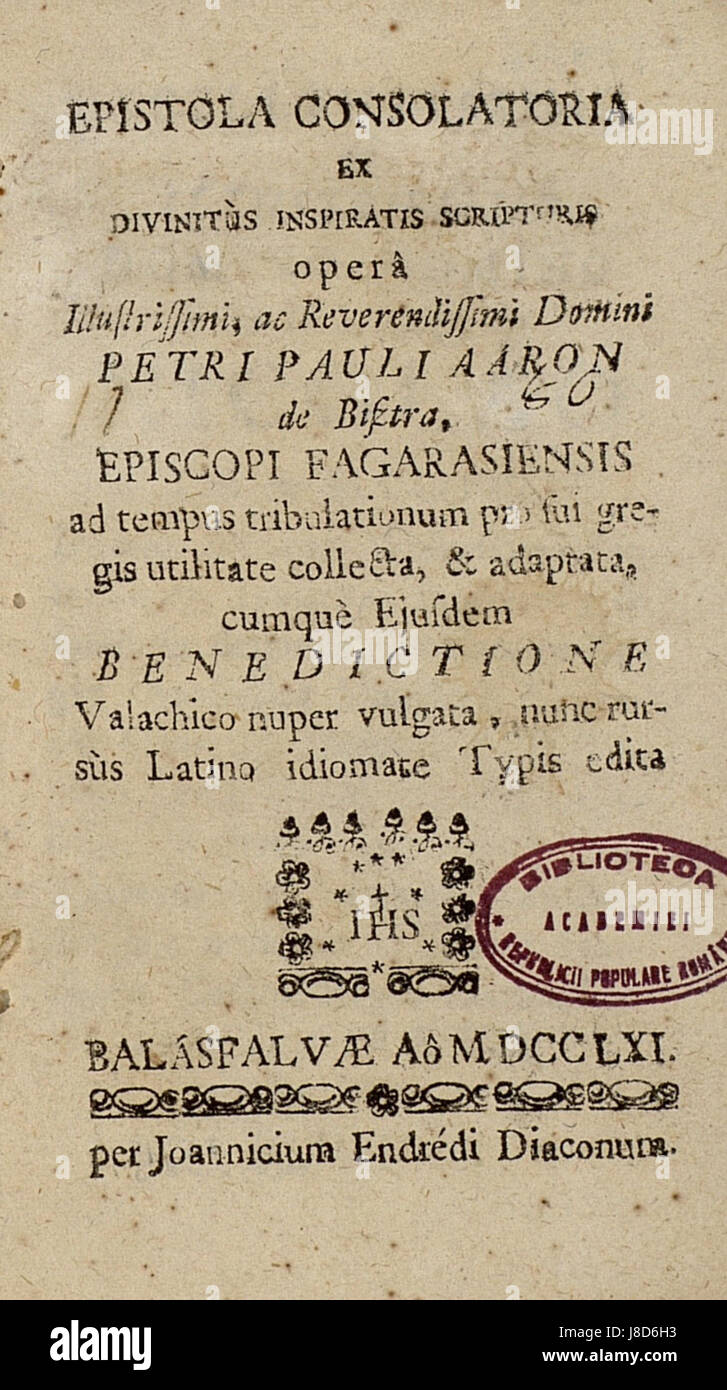 EPISTOLA CONSOLATORIA
EX
DIVINITùS INSPIRATIS SCRIPTURIS
operâ
Illuſtriſſimi, ac Reverendiſſimi Domini
PETRI PAULI AARON
de Biſtra,
EPISCOPI FAGARASIENSIS
ad tempus tribulationum pro ſui gre-
gis utilitate collecta, & adaptata,
cumquè Ejuſdem
BENEDICTIONE
Valachico nuper vulgata, nunc rur-
sùs Latino idiomate Typis edita
IHS
BIBLIOTECA
ACADEMIEI
REPUBLICII POPULARE ROMÂ
BALÁSFALVÆ Aô MDCCLXI.
per Joannicium Endrédi Diaconum.
alamy
alamy
Image ID: J8D6H3
www.alamy.com